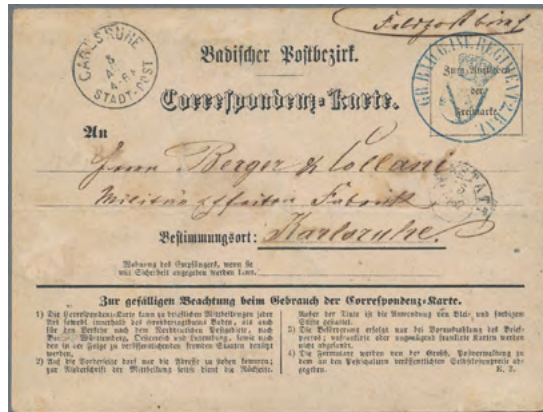 Feldpostbrief
CARLSRUHE
5
4-6
STADT-POST
Badischer Postbezirk.
GR. BAD. REGIMENT 2. BAT.
Zum Aufkleben
der
Freimarke.
Correspondenz-Karte.
An
Herrn Berger & Collani
Militär Fabrik
Bestimmungsort: Karlsruhe.
Wohnung des Empfängers, wenn sie
mit Sicherheit angegeben werden kann.
Zur gefälligen Beachtung beim Gebrauch der Correspondenz-Karte.
1) Die Correspondenz-Karte kann zu brieflichen Mittheilungen jeder
Art sowohl innerhalb des Großherzogthums Baden, als auch
für den Verkehr nach dem Norddeutschen Postgebiete, nach
Bayern, Württemberg, Oesterreich und Luxemburg, sowie nach
den in der Folge zu veröffentlichenden fremden Staaten benützt
werden.
2) Auf die Vorderseite darf nur die Adresse zu stehen kommen;
zur Niederschrift der Mittheilung selbst dient die Rückseite.
Außer der Tinte ist die Anwendung von Blei- und farbigem
Stifte gestattet.
3) Die Beförderung erfolgt nur bei Vorausbezahlung des Brief-
portos; unfrankirte oder ungenügend frankirte Karten werden
nicht abgesandt.
4) Die Formulare werden von der Großh. Postverwaltung zu
dem an den Postschaltern veröffentlichten Selbstkostenpreise ab-
gegeben.